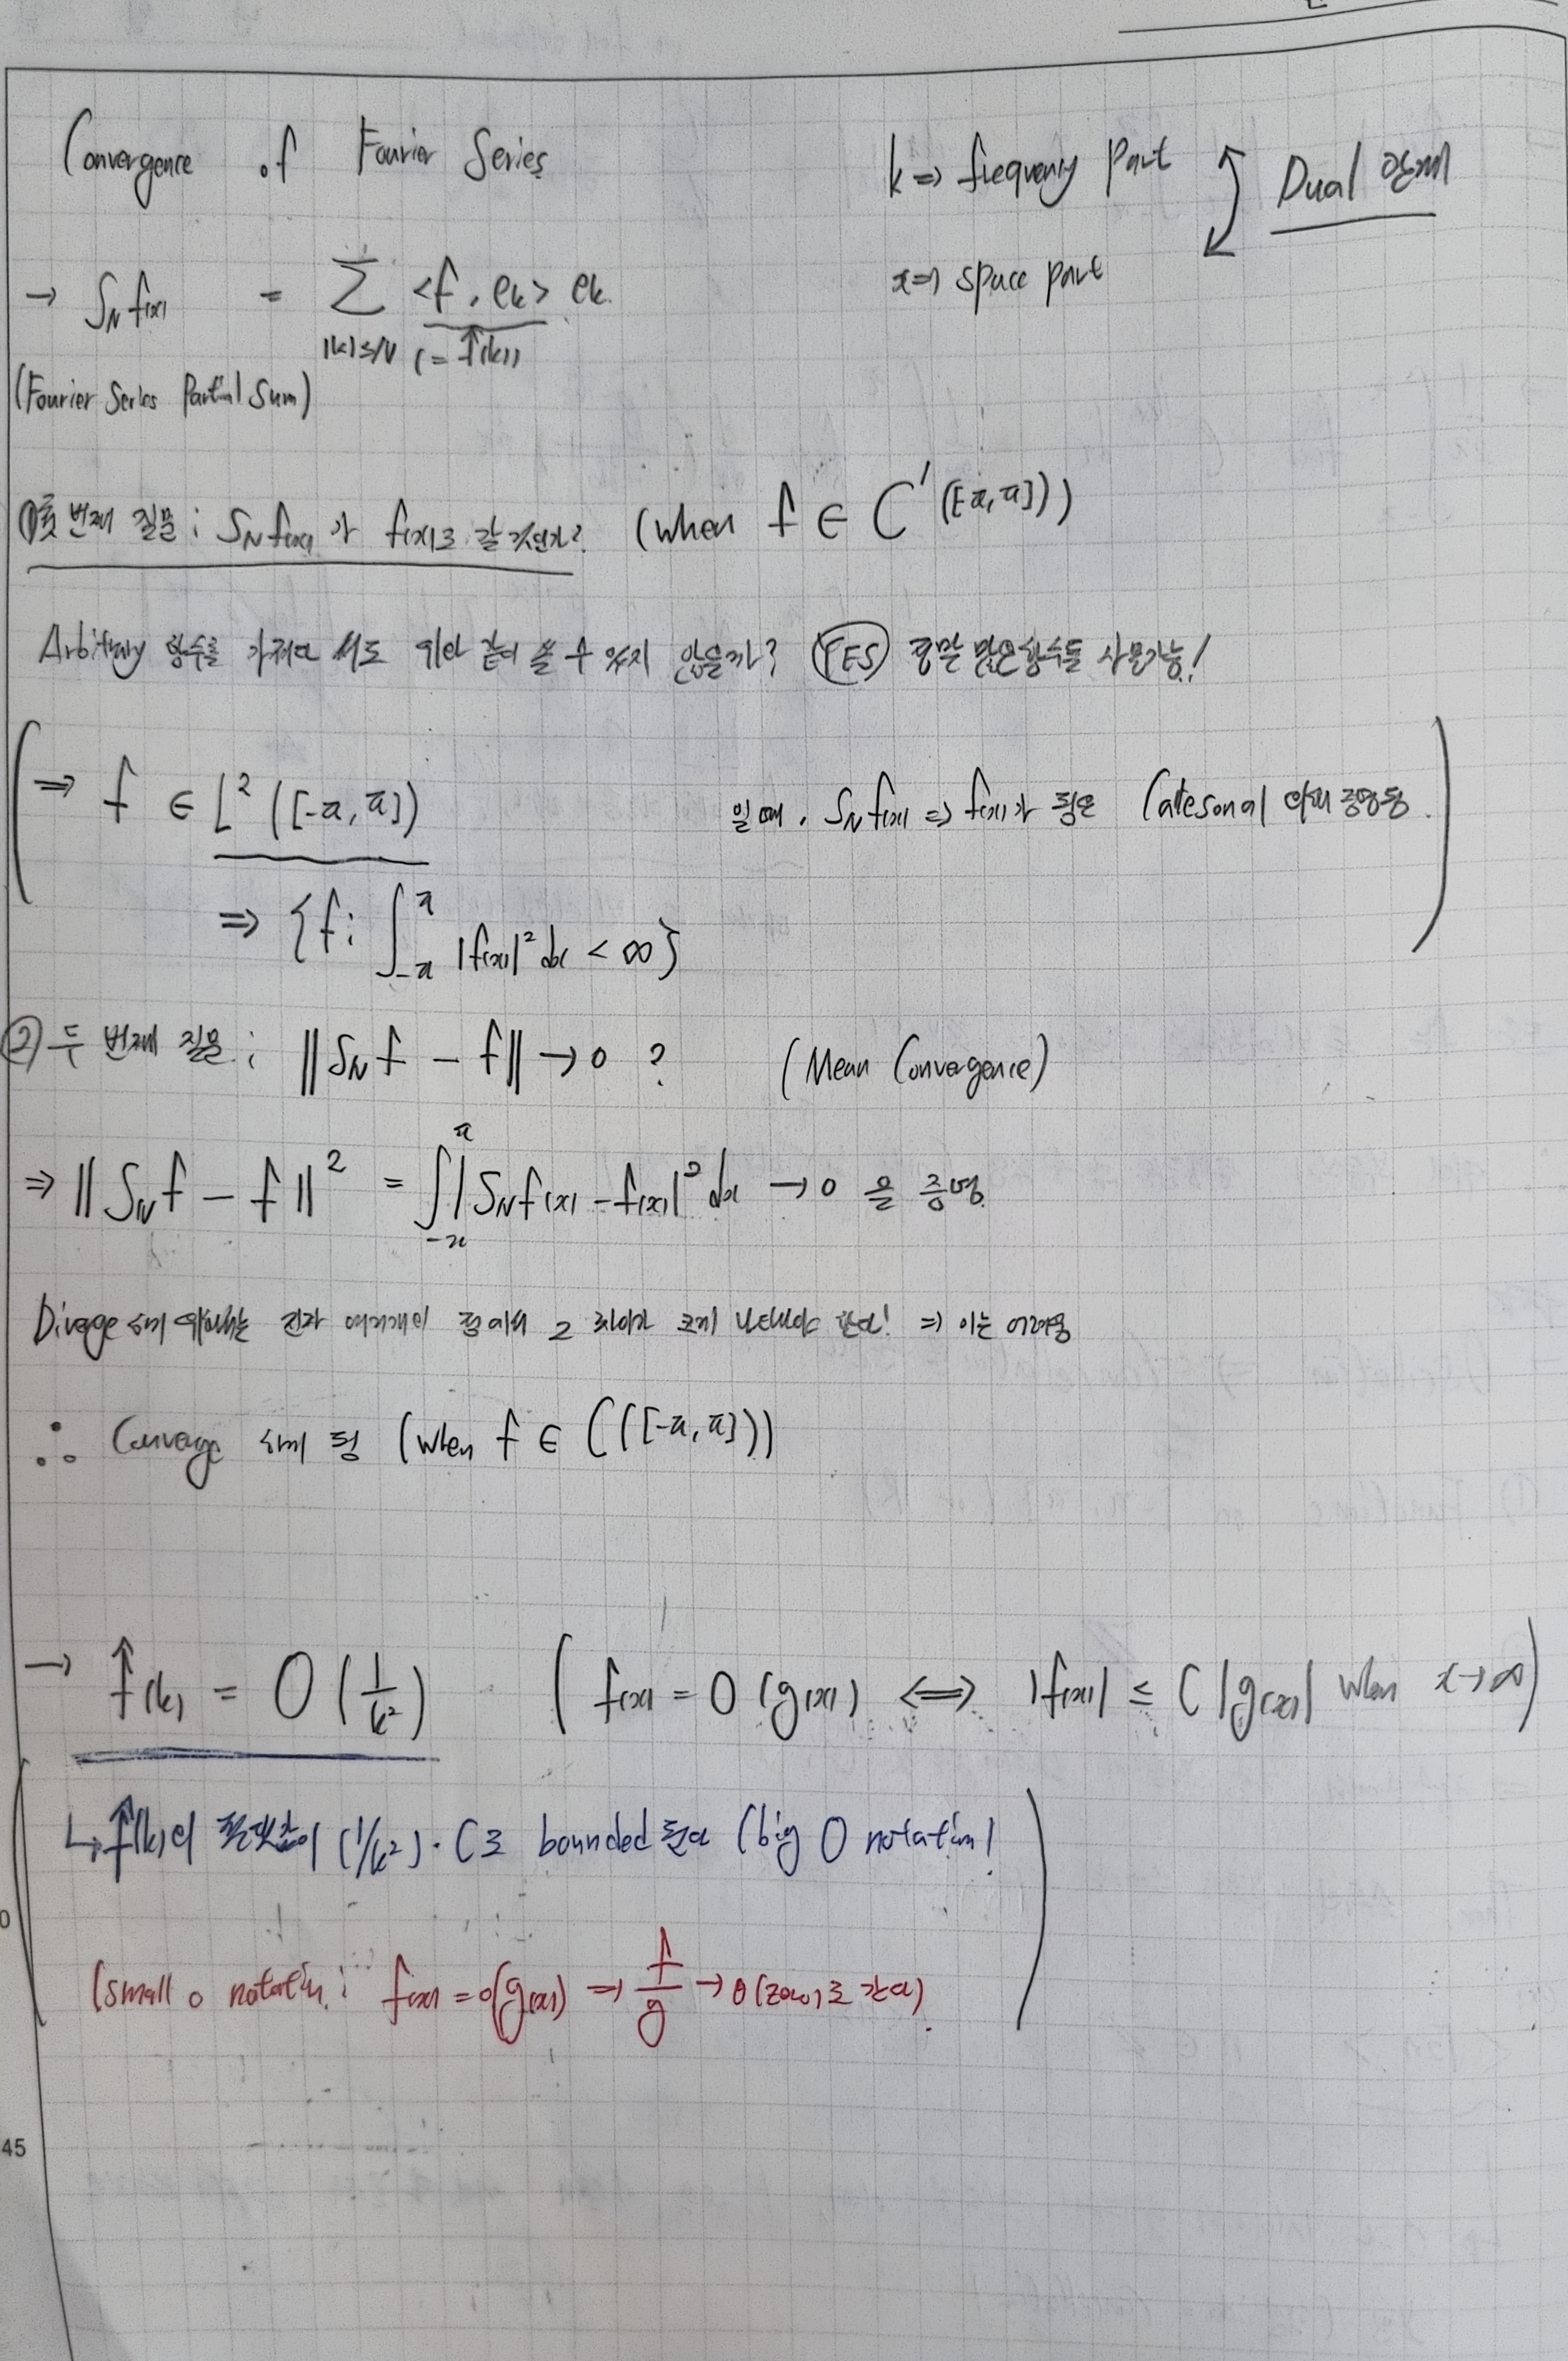 Convergence of Fourier Series
k => frequency part
Dual 관계
x => space part
→ S_N f(x) = Σ_{|k|≤N} <f, e_k> e_k
(= f̂(k))
(Fourier Series Partial Sum)
① 첫 번째 질문 : S_N f(x)가 f(x)로 갈 것인가? (when f ∈ C'([-π, π]))
Arbitrary 함수를 가져와서도 위와 같이 쓸 수 있지 않을까? YES 정말 많은 함수들 사용가능!
⇒ f ∈ L² ([-π, π]) 일 때, S_N f(x) ⇒ f(x)가 됨은 에 의해 증명됨.
⇒ {f : ∫_{-π}^{π} |f(x)|² dx < ∞}
② 두 번째 질문 : ‖S_N f - f‖ → 0 ? (Mean Convergence)
⇒ ‖S_N f - f‖² = ∫_{-π}^{π} |S_N f(x) - f(x)|² dx → 0 을 증명.
Diverge 하기 위해서는 진짜 여러개의 점에서 그 차이가 크게 나타나야 한다! ⇒ 이는 어려움
∴ Converge 하게 됨 (when f ∈ C([-π, π]))
→ f̂(k) = O(1/k²) (f(x) = O(g(x)) ⟺ |f(x)| ≤ C|g(x)| when x→∞)
↳ f̂(k)의 절댓값이 (1/k²)·C로 bounded 된다 (big O notation)
(small o notation : f(x) = o(g(x)) ⇒ f/g → 0 (zero)로 간다)
45